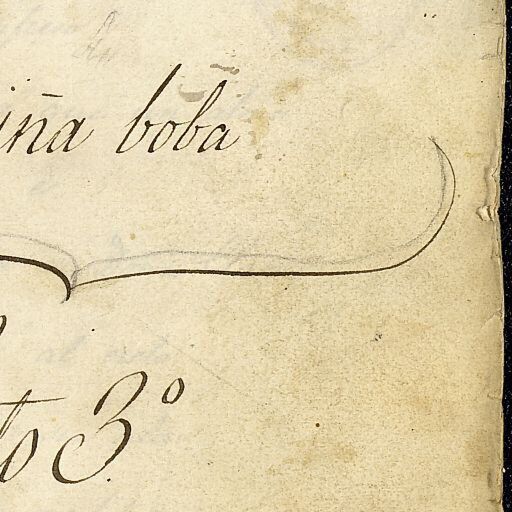 iña boba
to 3º